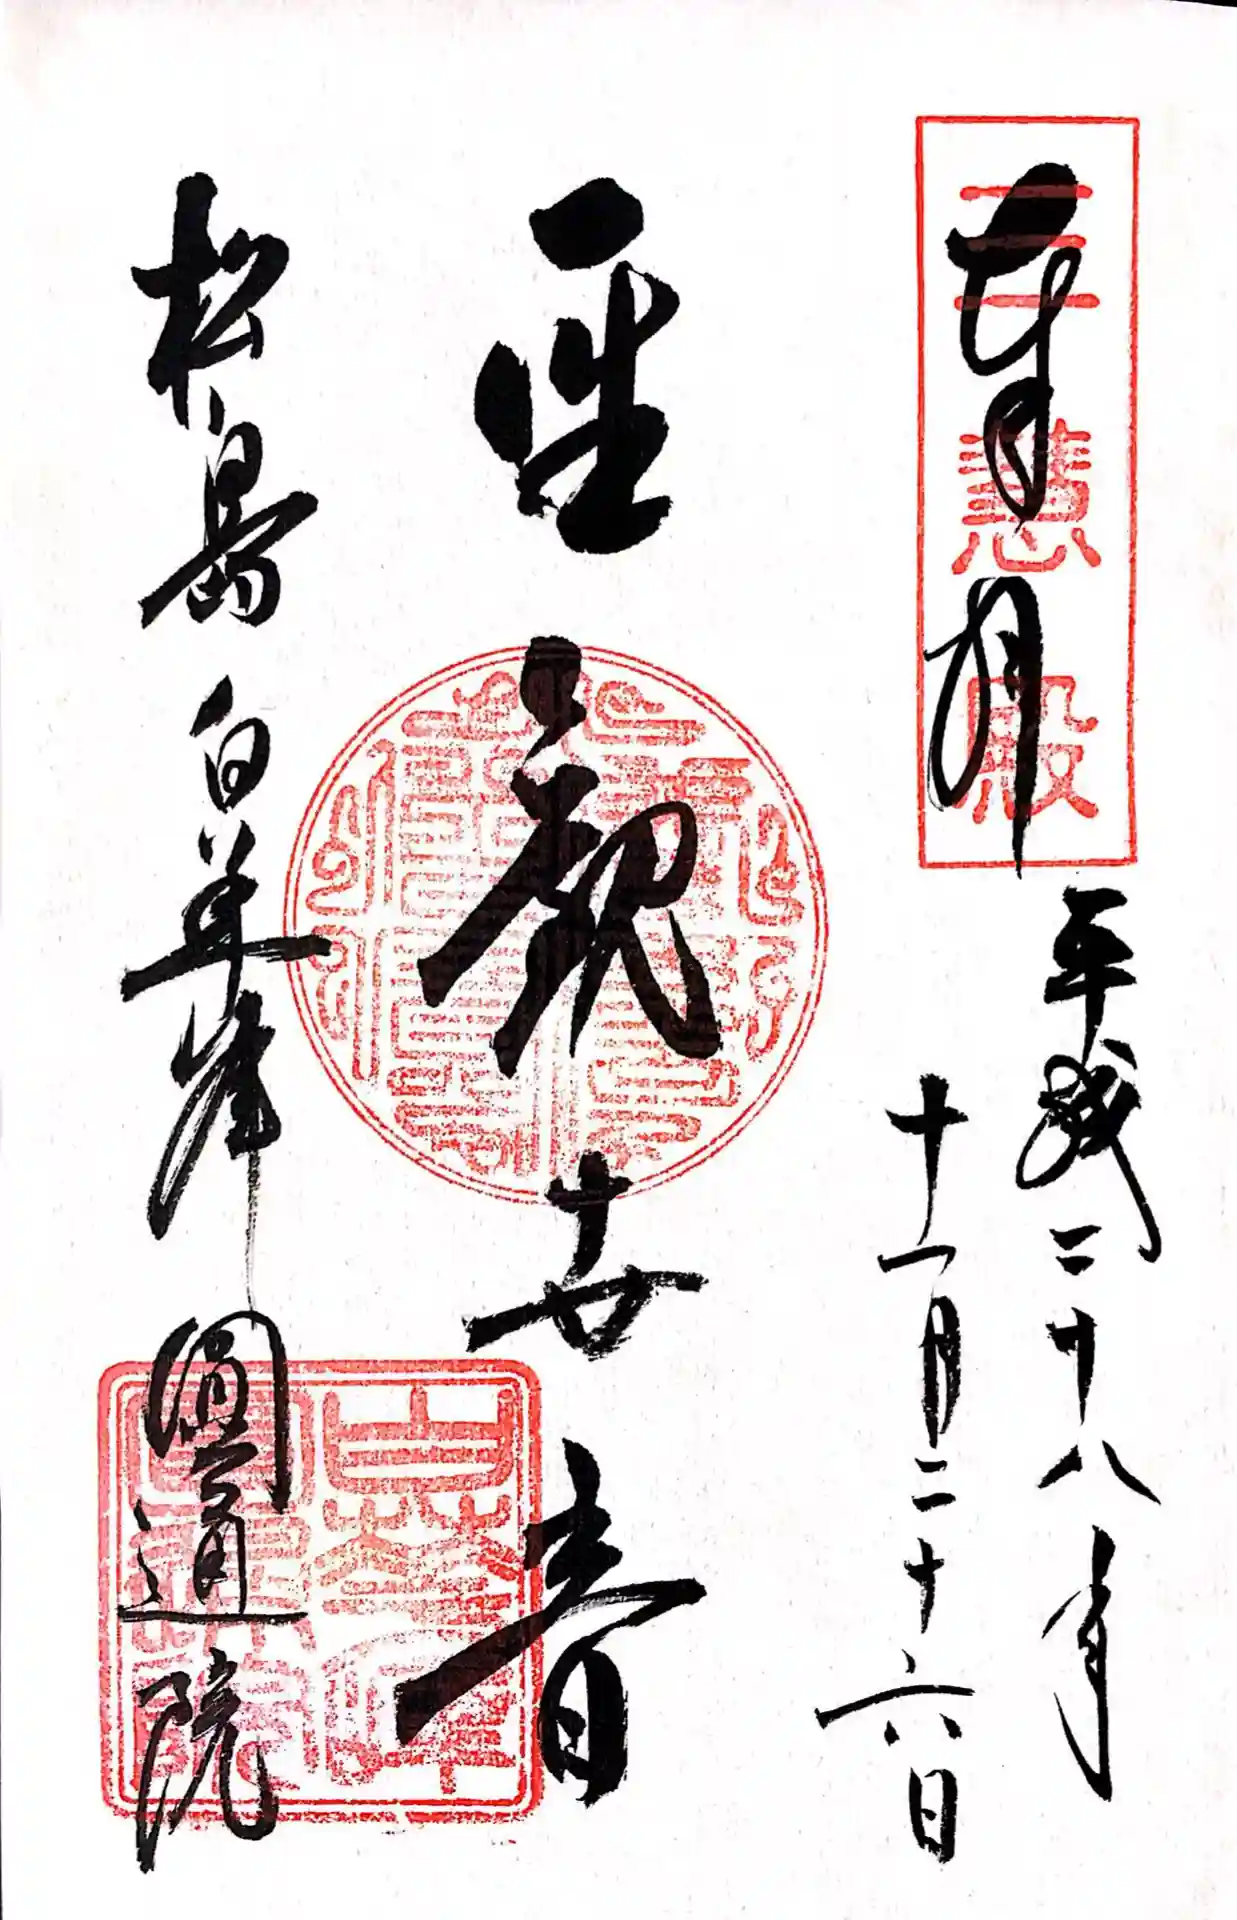 奉拝
三慧殿
平成二十八年
十一月二十六日
聖観世音
松島 白華峰 圓通院